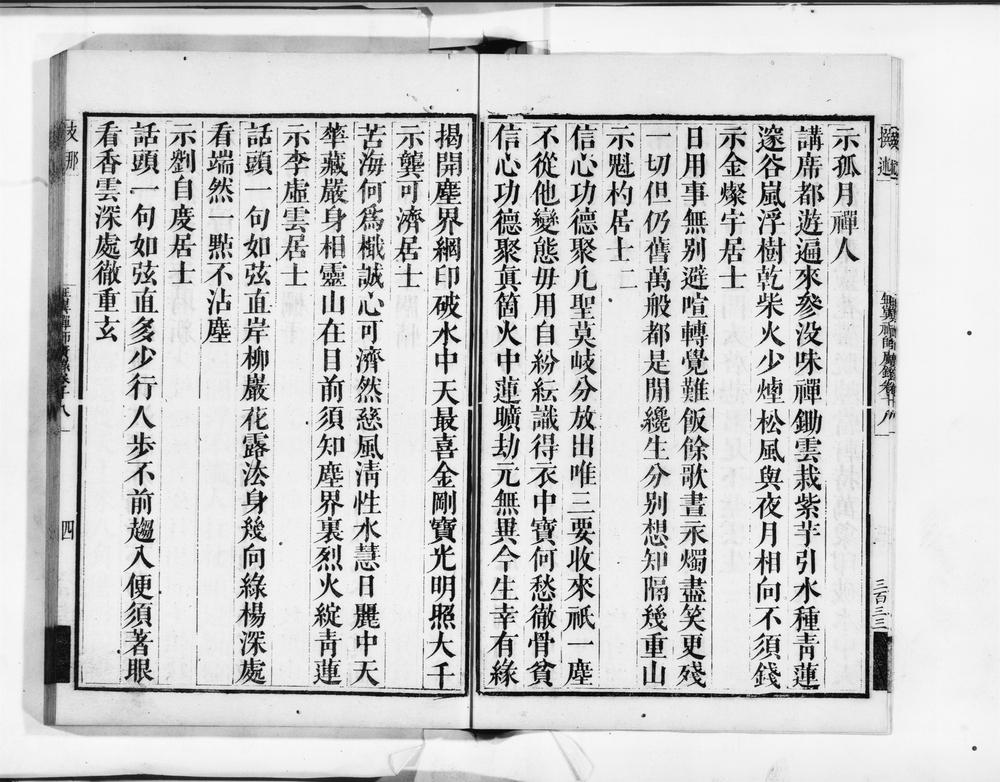 示孤月禪人
講席都遊遍來參没味禪鋤雲栽紫芋引水種靑蓮
邃谷嵐浮樹乾柴火少煙松風與夜月相向不須錢
示金燦宇居士
日用事無别避喧轉覺難飯餘歌晝永燭盡笑更殘
一切但仍舊萬般都是閒纔生分别想知隔幾重山
示魁杓居士二
信心功德聚凡聖莫岐分放出唯三要收來祇一塵
不從他變態毋用自紛紜識得衣中寶何愁徹骨貧
信心功德聚眞箇火中蓮曠劫元無異今生幸有緣
揭開塵界網印破水中天最喜金剛寶光明照大千
示龔可濟居士
苦海何爲檝誠心可濟然慈風淸性水慧日麗中天
華藏嚴身相靈山在目前須知塵界裏烈火綻靑蓮
示李虛雲居士
話頭一句如弦直岸柳巖花露法身幾向綠楊深處
看端然一㸃不沾塵
示劉自度居士
話頭一句如弦直多少行人步不前趨入便須著眼
看香雲深處徹重玄
支那
四
三百三三